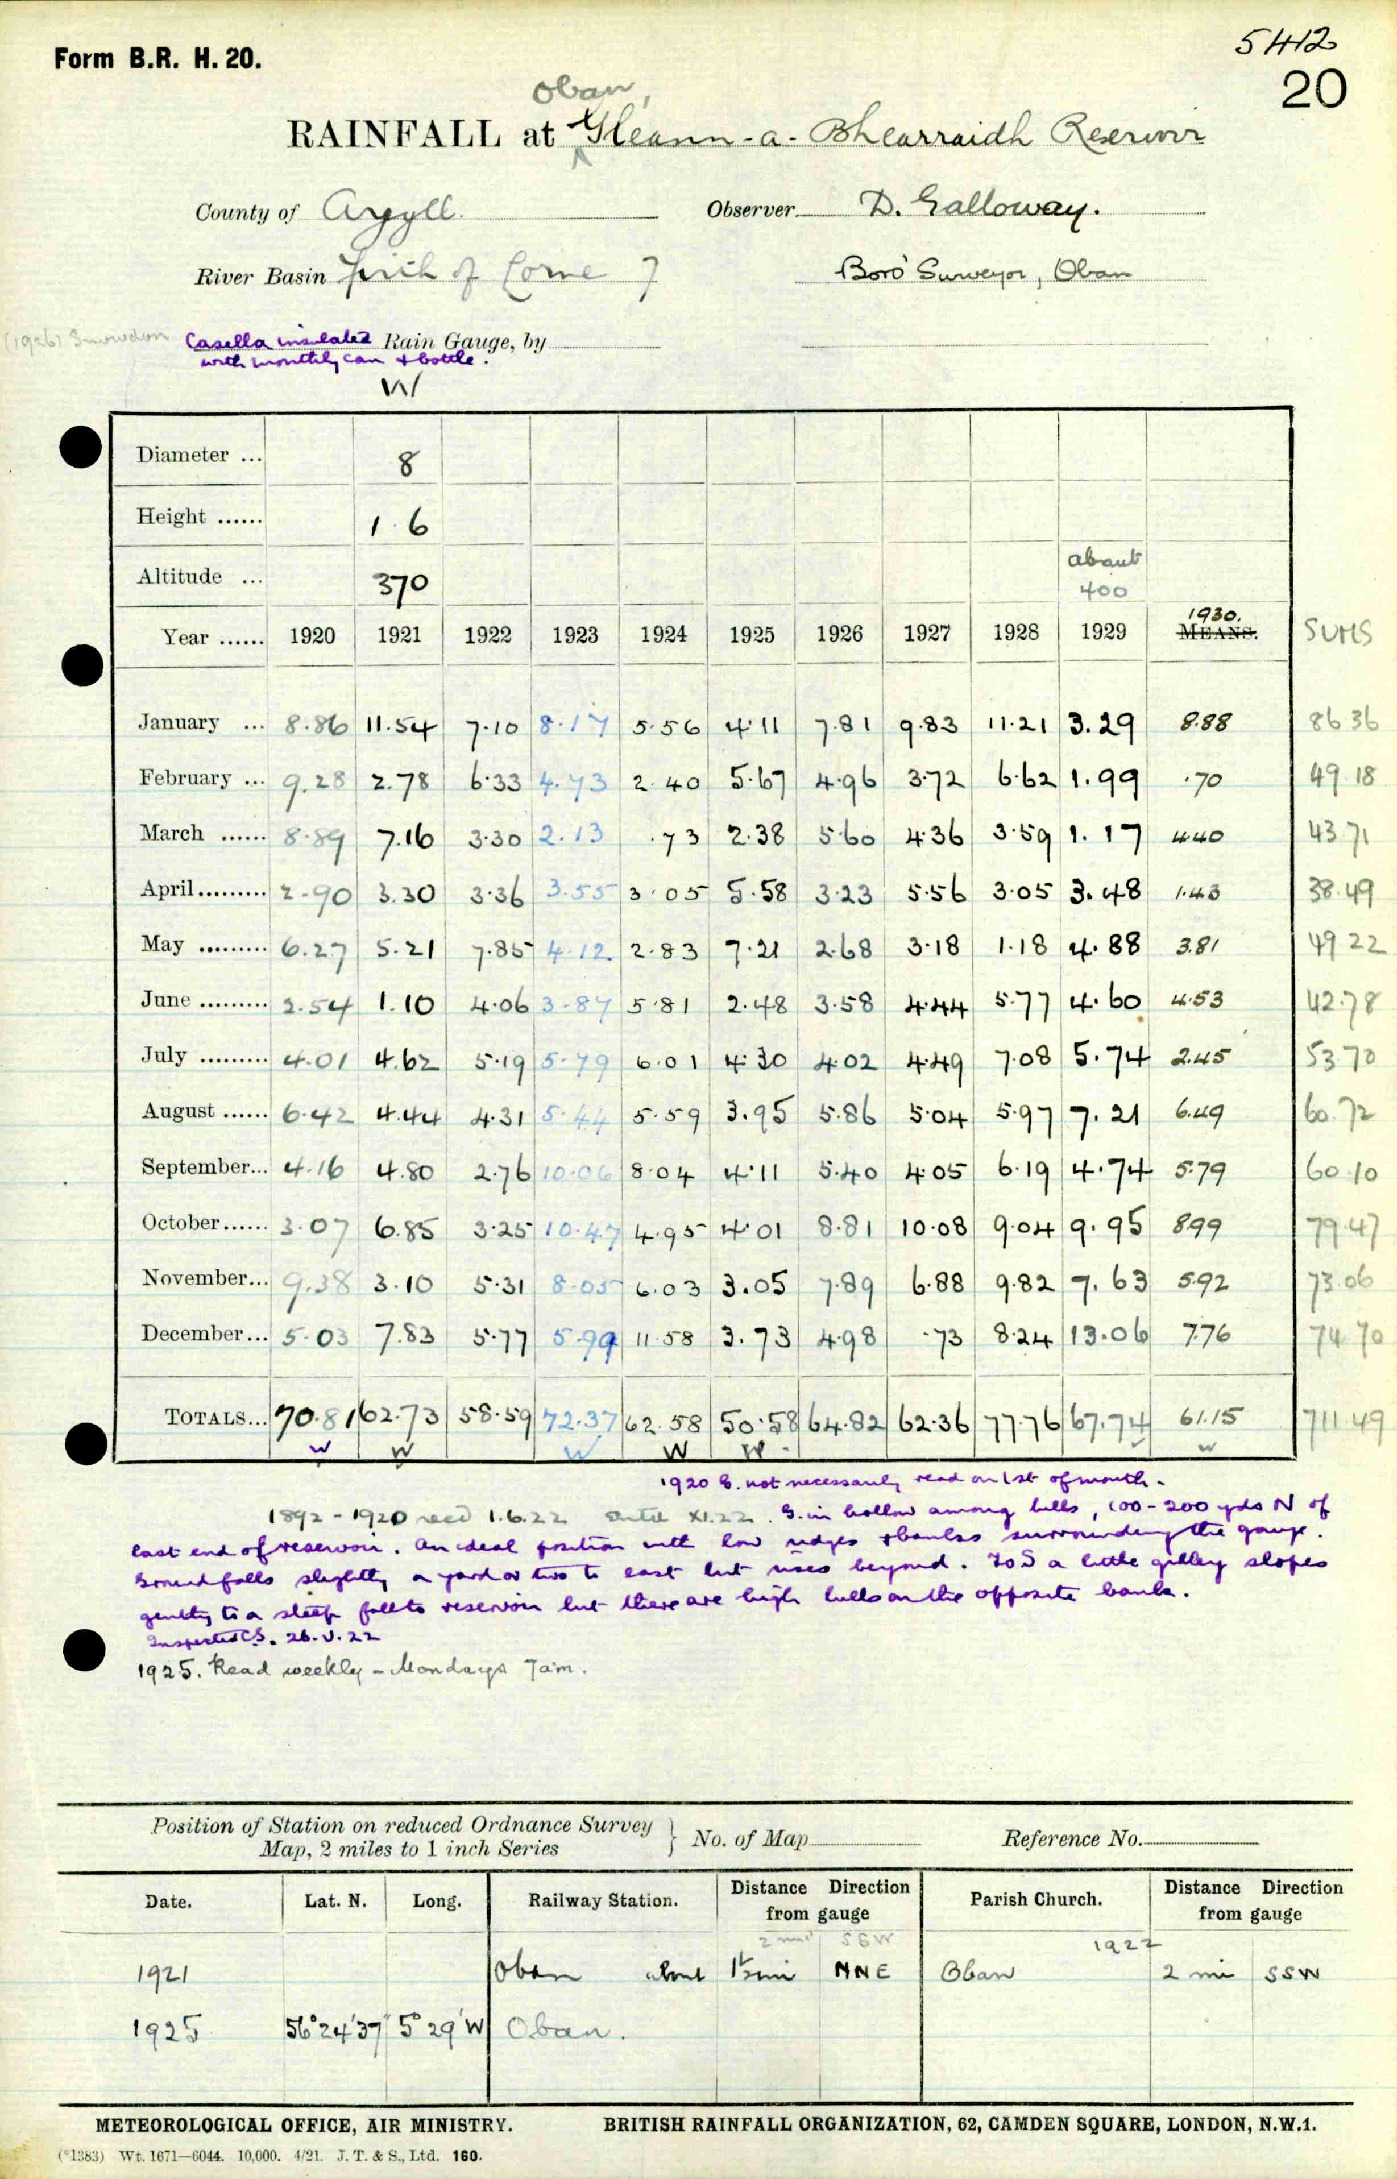 5412
Form B.R. H. 20.
20
Oban,
RAINFALL at Gleann-a-Bhearraidh Reservoir
County of Argyll. Observer D. Galloway.
River Basin Firth of Lorne 7 Boro' Surveyor, Oban
(1926) Snowdon Casella insulated Rain Gauge, by
with monthly can & bottle.
W
Diameter ... 8
Height ...... 1 6
about
Altitude ... 370 400
1930.
Year ...... 1920 1921 1922 1923 1924 1925 1926 1927 1928 1929 MEANS. SUMS
January ... 8.86 11.54 7.10 8.17 5.56 4.11 7.81 9.83 11.21 3.29 8.88 86 36
February ... 9.28 2.78 6.33 4.73 2.40 5.67 4.96 3.72 6.62 1.99 .70 49.18
March ...... 8.89 7.16 3.30 2.13 .73 2.38 5.60 4.36 3.59 1.17 4.40 43 71
April ......... 2.90 3.30 3.36 3.55 3.05 5.58 3.23 5.56 3.05 3.48 1.43 38.49
May ......... 6.27 5.21 7.85 4.12 2.83 7.21 2.68 3.18 1.18 4.88 3.81 49 22
June ......... 2.54 1.10 4.06 3.87 5.81 2.48 3.58 4.44 5.77 4.60 4.53 42.78
July ......... 4.01 4.62 5.19 5.79 6.01 4.30 4.02 4.49 7.08 5.74 2.45 53.70
August ...... 6.42 4.44 4.31 5.44 5.59 3.95 5.86 5.04 5.97 7.21 6.49 60.72
September... 4.16 4.80 2.76 10.06 8.04 4.11 5.40 4.05 6.19 4.74 5.79 60.10
October...... 3.07 6.85 3.25 10.47 4.95 4.01 8.81 10.08 9.04 9.95 8.99 79.47
November... 9.38 3.10 5.31 8.05 6.03 3.05 7.89 6.88 9.82 7.63 5.92 73.06
December... 5.03 7.83 5.77 5.99 11.58 3.73 4.98 .73 8.24 13.06 7.76 74.70
TOTALS... 70.81 62.73 58.59 72.37 62.58 50.58 64.82 62.36 77.76 67.74 61.15 711.49
W W W W W W
1920 G. not necessarily read on 1st of month.
1892 - 1920 recd 1.6.22 XI.22. G. in hollow among hills, 100-200 yds N of
east end of reservoir. An ideal position with low ridges & banks surrounding the gauge.
Ground falls slightly a yard or two to east but rises beyond. To S a little gulley slopes
gently to a steep fall to reservoir but there are high hills on the opposite bank.
Inspected C.S. 26.V.22
1925. Read weekly - Mondays 7am.
Position of Station on reduced Ordnance Survey
Map, 2 miles to 1 inch Series } No. of Map Reference No.
Date. Lat. N. Long. Railway Station. Distance Direction from gauge Parish Church. Distance Direction from gauge
2 mi SSW 1922
1921 Oban about 1½ mi NNE Oban 2 mi SSW
1925 56° 24' 37" 5° 29' W Oban.
METEOROLOGICAL OFFICE, AIR MINISTRY. BRITISH RAINFALL ORGANIZATION, 62, CAMDEN SQUARE, LONDON, N.W.1.
(*1383) Wt. 1671—6044. 10,000. 4/21. J. T. & S., Ltd. 160.